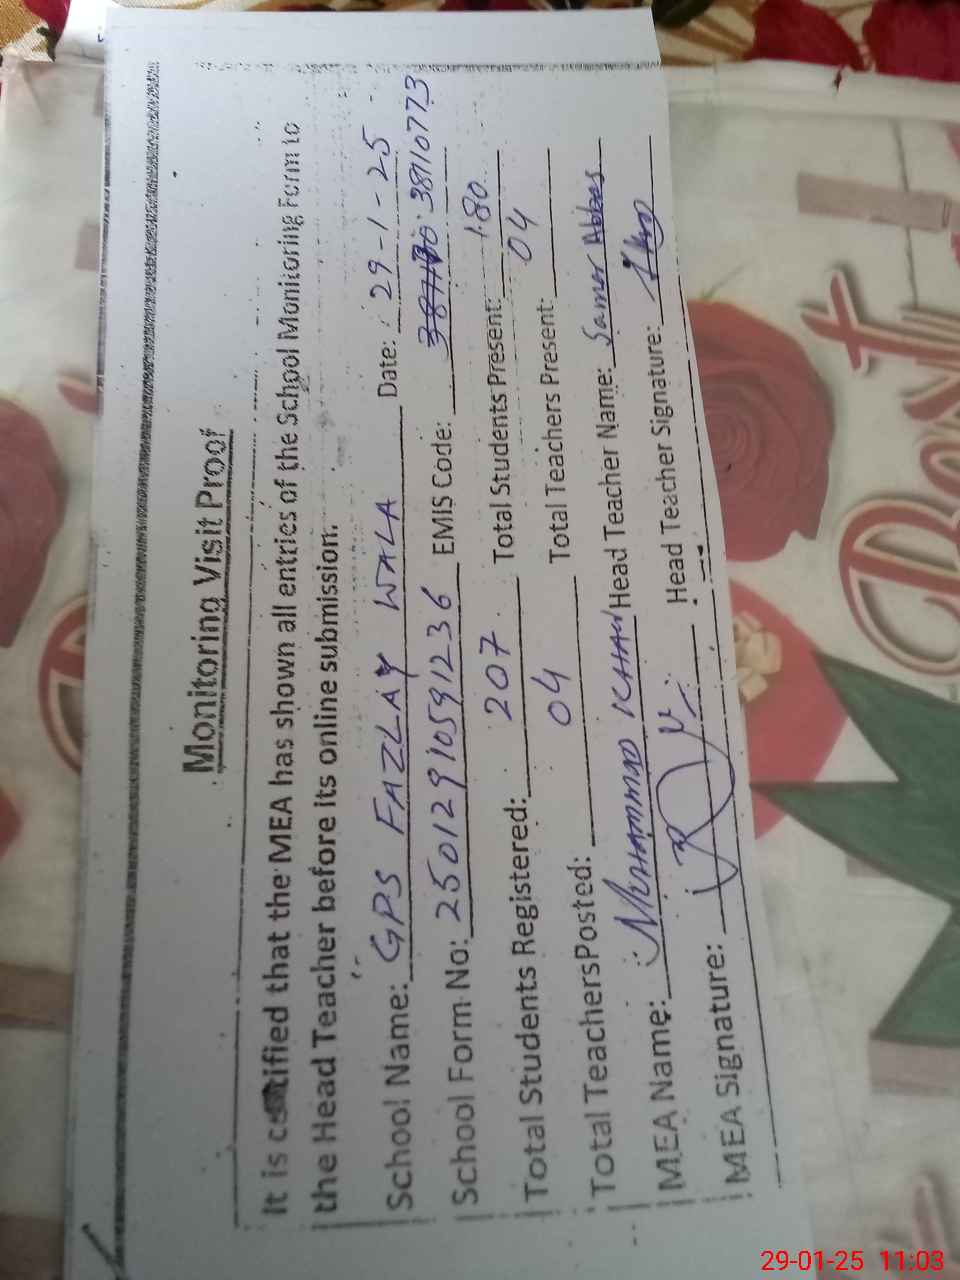 Monitoring Visit Proof
It is certified that the MEA has shown all entries of the School Monitoring Form to
the Head Teacher before its online submission.
School Name: GPS FAZLAY WALA Date: 29-1-25
School Form No: 2501291059 1236 EMIS Code: 38110773
Total Students Registered: 207 Total Students Present: 180
Total TeachersPosted: 04 Total Teachers Present: 04
MEA Name: MUHAMMAD KHAN Head Teacher Name: Samar Abbas
MEA Signature: Head Teacher Signature:
Best
29-01-25 11:03